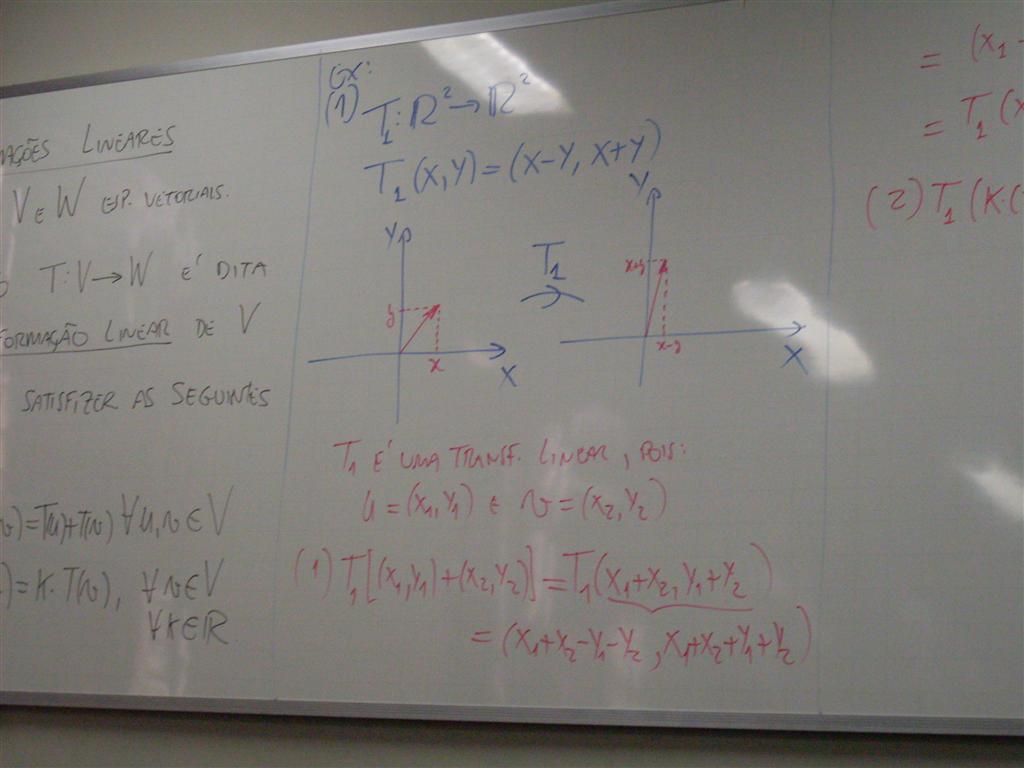 MAÇÕES LINEARES
V E W ESP. VETORIAIS.
O T: V → W É DITA
FORMAÇÃO LINEAR DE V
SATISFIZER AS SEGUINTES
v) = T(u) + T(v) ∀ u, v ∈ V
) = K. T(v), ∀ v ∈ V
∀ K ∈ ℝ
EX:
(1) T₁: ℝ² → ℝ²
T₁(X, Y) = (X-Y, X+Y)
Y
y
x
X
T₁
Y
x+y
x-y
X
T₁ É UMA TRANSF. LINEAR, POIS:
u = (X₁, Y₁) E v = (X₂, Y₂)
(1) T₁[(X₁, Y₁) + (X₂, Y₂)] = T₁(X₁+X₂, Y₁+Y₂)
= (X₁+X₂-Y₁-Y₂, X₁+X₂+Y₁+Y₂)
= (X₁ -
= T₁(X
(2) T₁(K.(